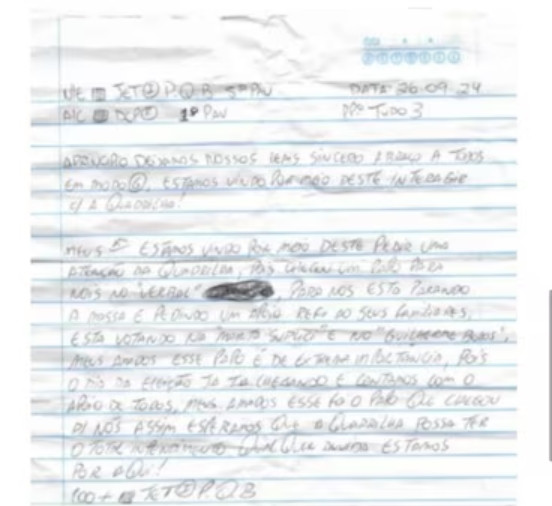 DATA: 26.09.24
1º PAV
PPº TUDO 3
DEIXAMOS NOSSOS LEAIS SINCERO ABRAÇO A TODOS
EM MODO G, ESTAMOS VINDO POR MEIO DESTE INTERAGIR
C/ A QUADRILHA!
MEUS ESTAMOS VINDO POR MEIO DESTE PEDIR UMA
ATENÇÃO DA QUADRILHA, POIS CHEGOU UM PAPO PARA
NOIS NO "VERBAL" PARA NOS ESTO PARANDO
A NOSSA E PEDINDO UM APOIO REF. AO SEUS FAMILIARES,
ESTA VOTANDO NA "MARTA SUPLICY" E NO "GUILHERME BOULOS",
MEUS AMADOS ESSE PAPO É DE EXTREMA IMPORTANCIA, POIS
O DIA DA ELEIÇÃO JA TA CHEGANDO E CONTAMOS COM O
APOIO DE TODOS, MEUS AMADOS ESSE FOI O PAPO QUE CHEGOU
P/ NOS ASSIM ESPERAMOS QUE A QUADRILHA POSSA TER
O TOTAL QUALQUER DUVIDA ESTAMOS
POR AQUI!
100 +